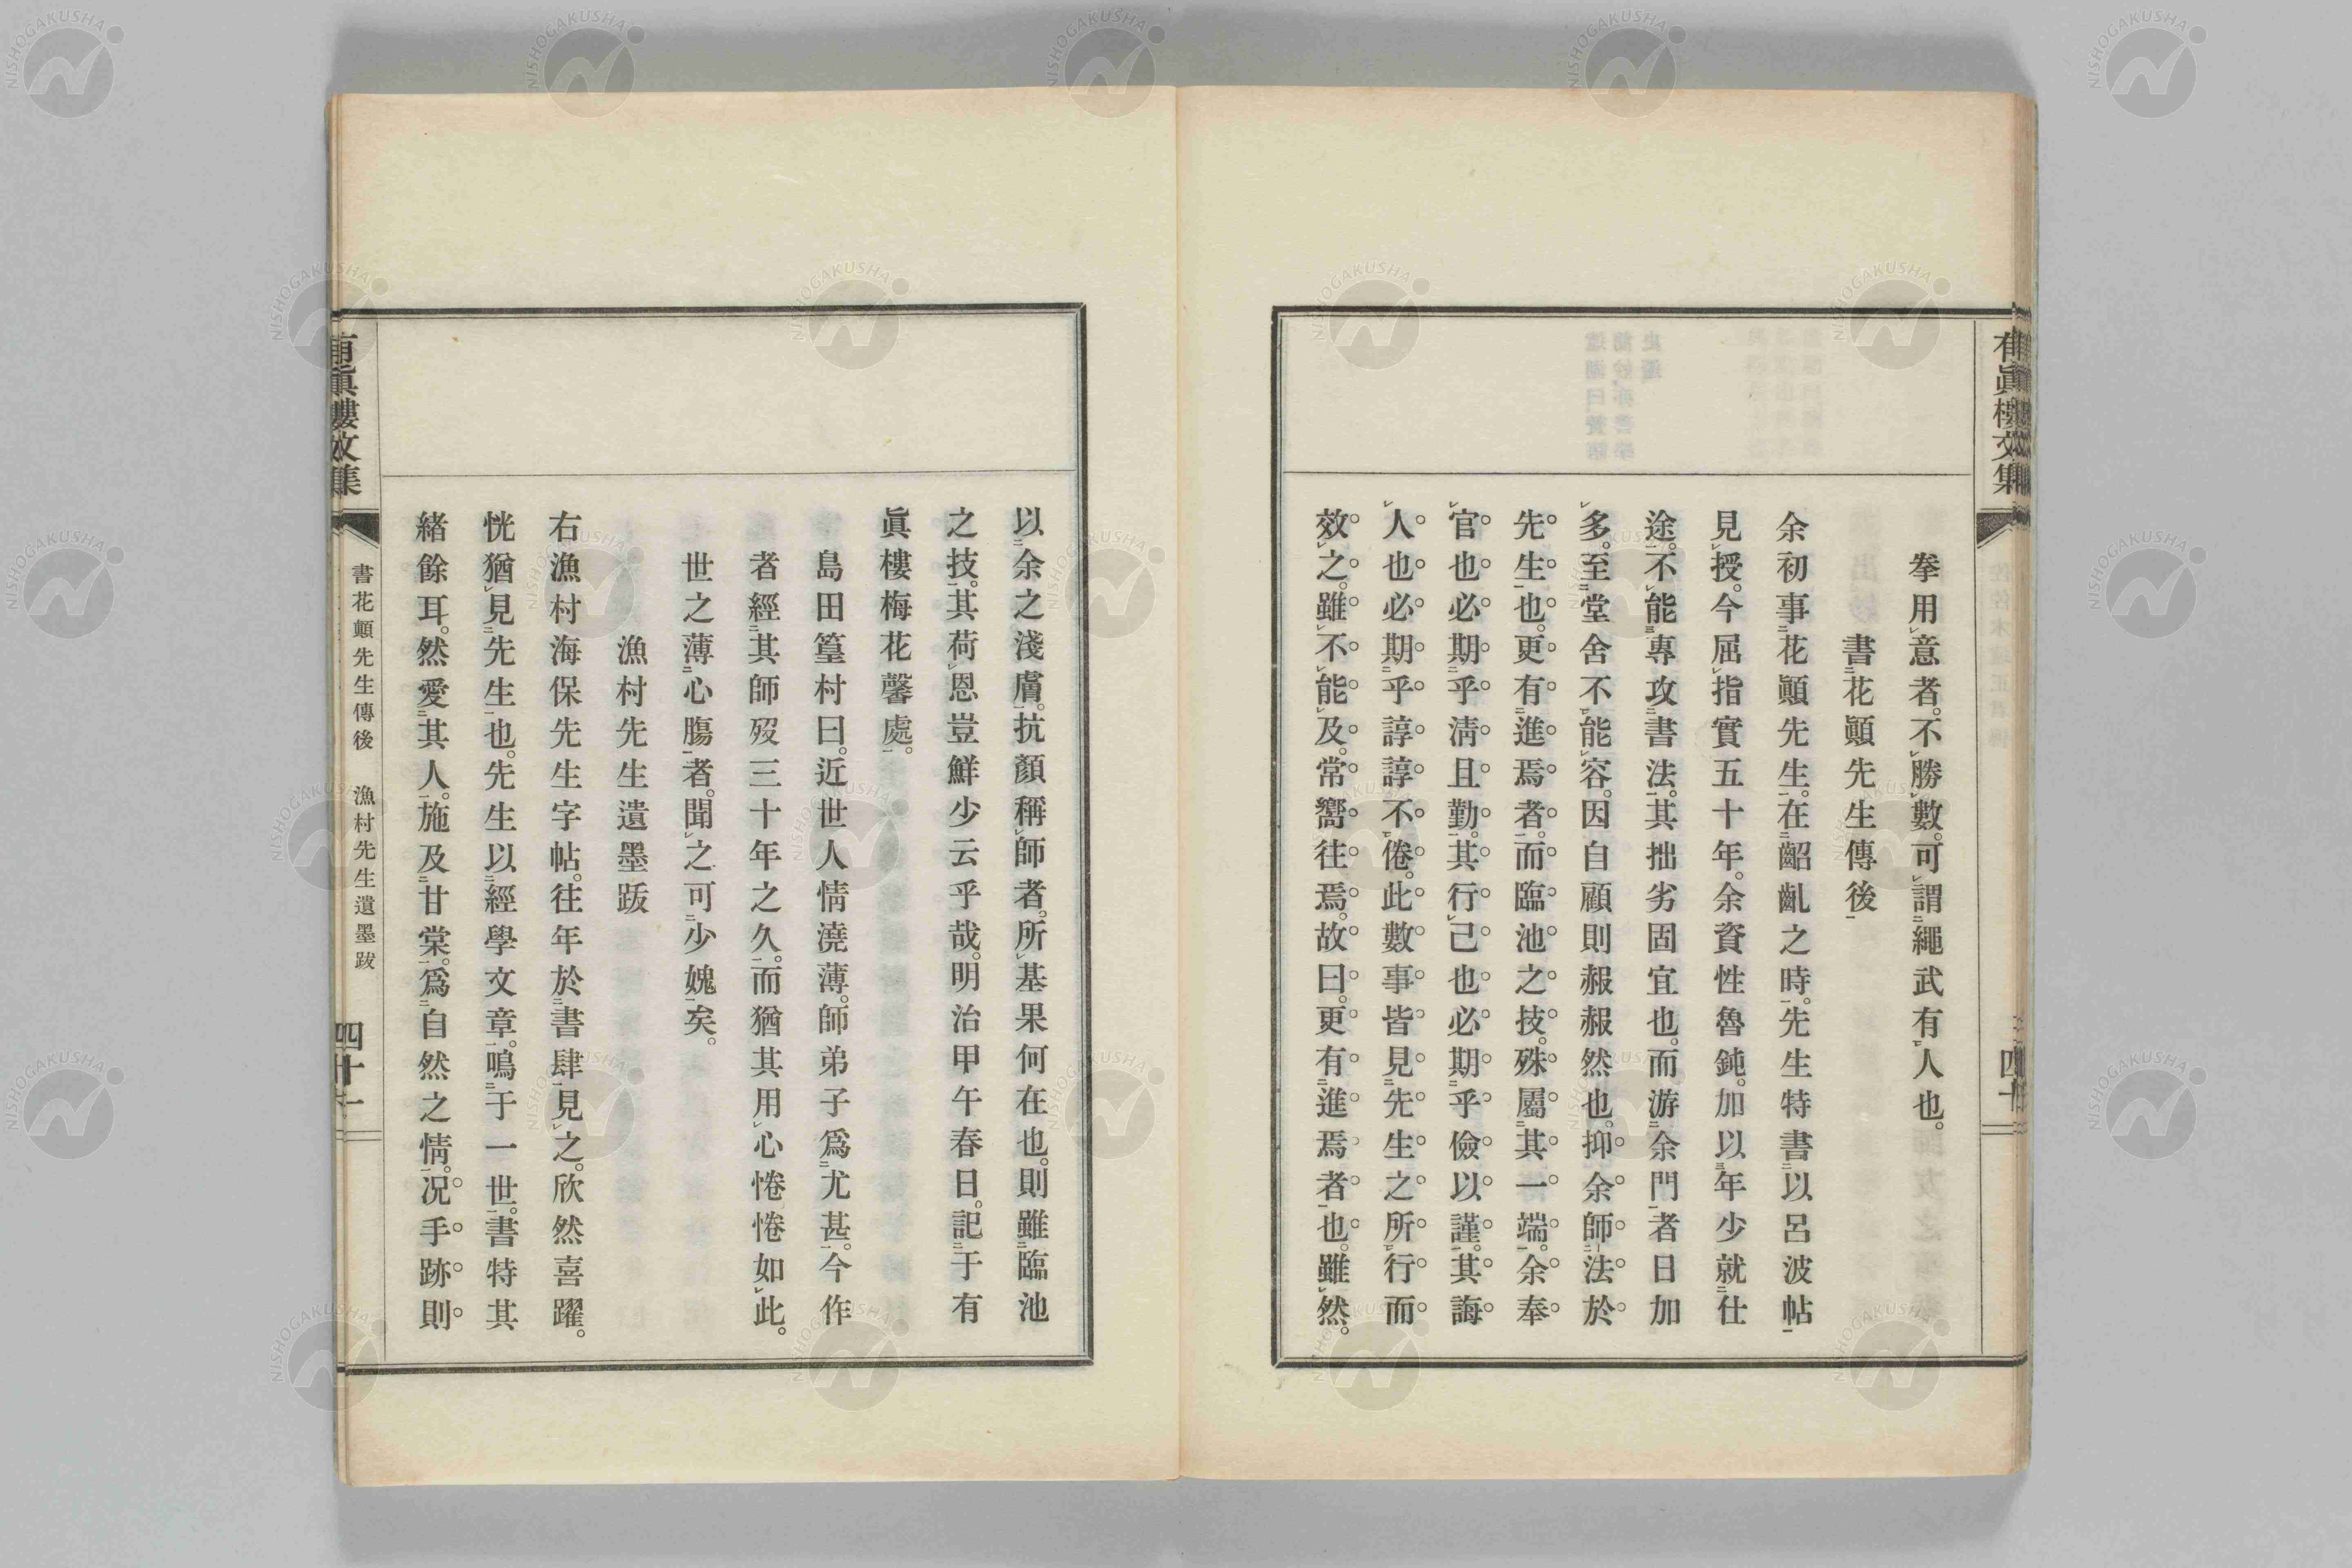 有眞樓文集
四十
拳用意者。不勝數。可謂繩武有人也。
書花顚先生傳後
余初事花顚先生。在齠齔之時。先生特書以呂波帖
見授。今屈指實五十年。余資性魯鈍。加以年少就仕
途。不能專攻書法。其拙劣固宜也。而游余門者日加
多。至堂舍不能容。因自顧則赧赧然也。抑余師法於
先生也。更有進焉者。而臨池之技。殊屬其一端。余奉
官也必期乎淸且勤。其行己也必期乎儉以謹。其誨
人也必期乎諄諄不倦。此數事皆見先生之所行而
效之。雖不能及。常嚮往焉。故曰。更有進焉者也。雖然。
以余之淺膚。抗顏稱師者。所基果何在也。則雖臨池
之技。其荷恩豈鮮少云乎哉。明治甲午春日。記于有
眞樓梅花馨處。
島田篁村曰。近世人情澆薄。師弟子爲尤甚。今作
者經其師歿三十年之久。而猶其用心惓惓如此。
世之薄心膓者。聞之可少媿矣。
漁村先生遺墨跋
右漁村海保先生字帖。往年於書肆見之。欣然喜躍。
恍猶見先生也。先生以經學文章。鳴于一世。書特其
緒餘耳。然愛其人。施及甘棠。爲自然之情。況手跡則
有眞樓文集
書花顚先生傳後　漁村先生遺墨跋
四十一
NISHOGAKUSHA